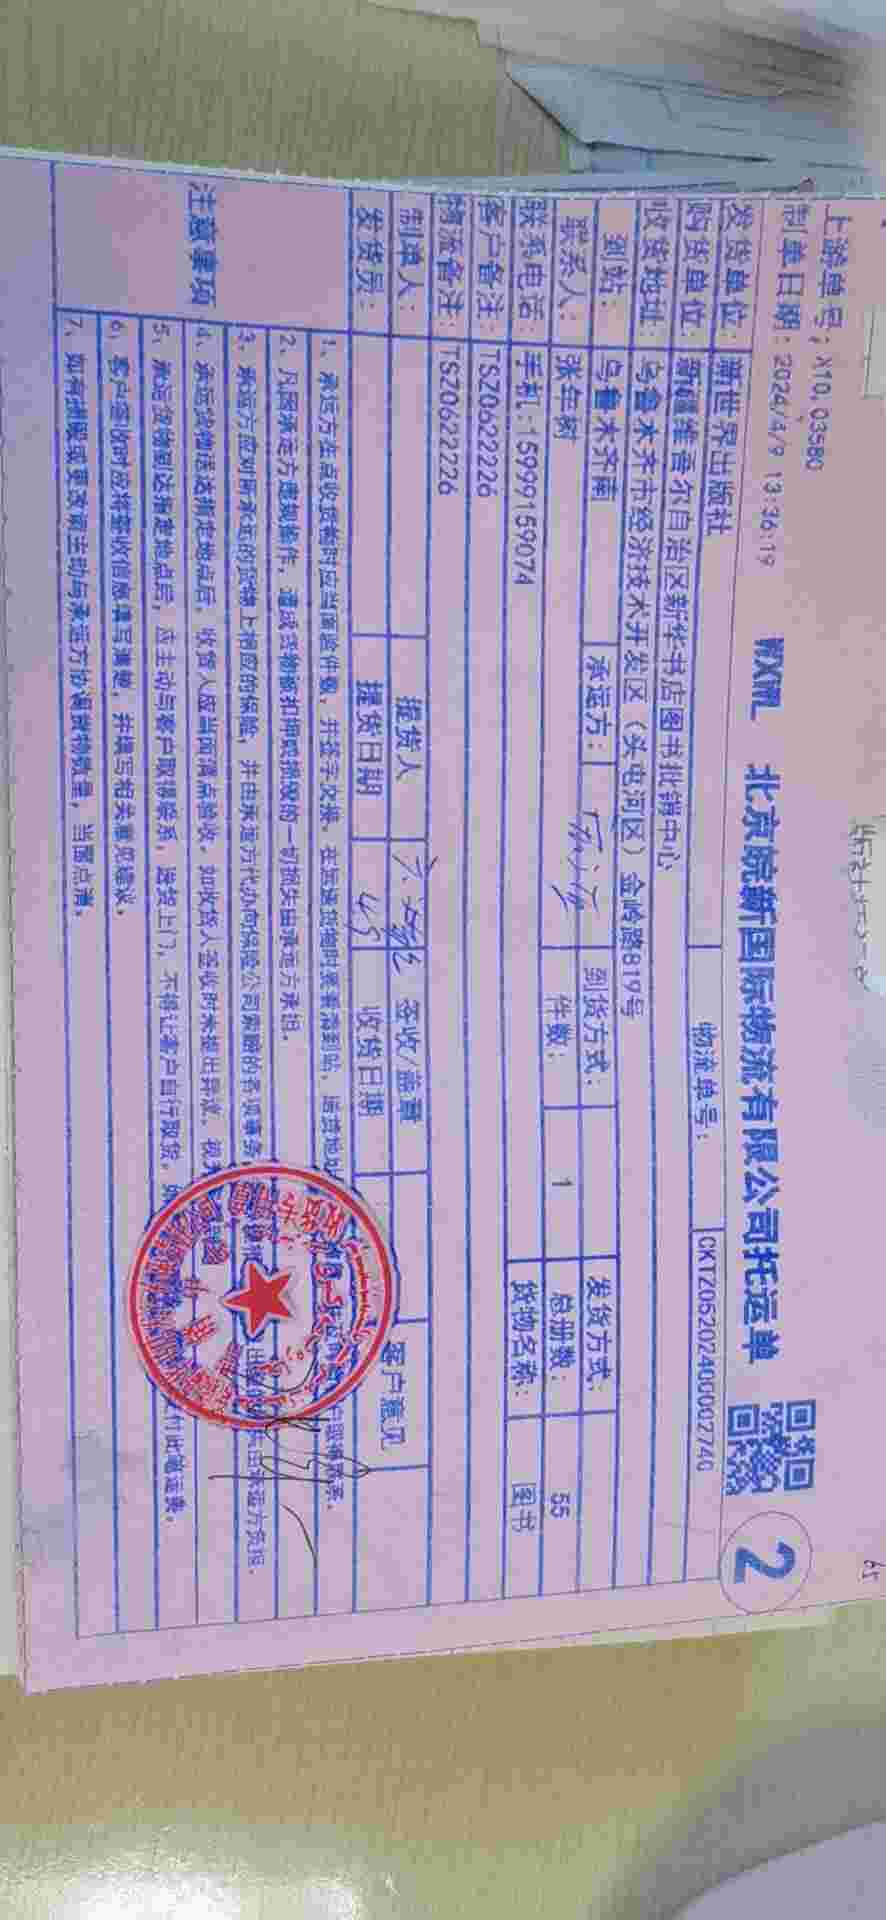 上游单号：X10,03580
制单日期：2024/4/9 13:36:19 WXWL 北京皖新国际物流有限公司托运单 2
发货单位：新世界出版社 物流单号：CKTZ0620240002740
购货单位：新疆维吾尔自治区新华书店图书批销中心
收货地址：乌鲁木齐市经济技术开发区（头屯河区）金岭路819号
到站：乌鲁木齐南 承运方： 到货方式： 发货方式：
联系人：张年树 件数：1 总册数：55
联系电话：手机:15999159074 货物名称：图书
客户备注：TSZ0622226
物流备注：TSZ0622226
制单人： 提货人 签收/盖章 客户意见
发货员： 提货日期 4.9 收货日期
注意事项
1、承运方在点收货物时应当面验件数，并签字交接。在发运货物时要看清到站、送货地址
2、凡因承运方违规操作，造成货物被扣押或损毁的一切损失由承运方承担。
3、承运方应对所承运的货物上相应的保险，并由承运方代办向保险公司索赔的各项事务
4、承运货物送达指定地点后，收货人应当面清点验收。如收货人签收时未提出异议，视为 由承运方负担。
5、承运货物到达指定地点后，应主动与客户取得联系，送货上门，不得让客户自行取货。 付此笔运费。
6、客户签收时应将签收信息填写清楚，并填写相关意见建议。
7、如有拼股或更改需主动与承运方协调货物数量，当面点清。
收货专用章
65